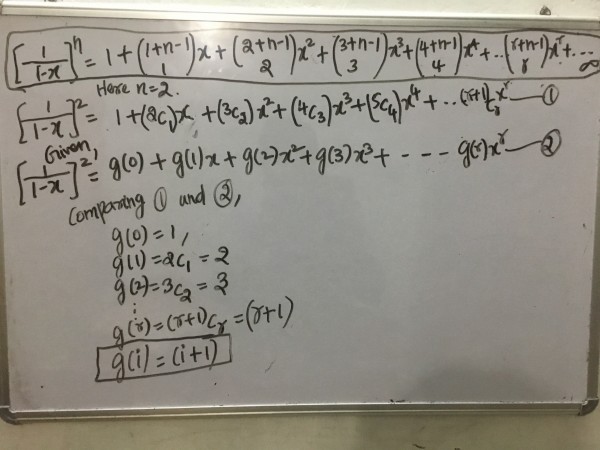 [1/1-x]^n = 1 + (1+n-1 1)x + (2+n-1 2)x² + (3+n-1 3)x³ + (4+n-1 4)x⁴ + .. (r+n-1 r)x^r + ... ∞
Here n=2.
[1/1-x]² = 1 + (2C₁)x + (3C₂)x² + (4C₃)x³ + (5C₄)x⁴ + .. (r+1)C_r x^r — ①
Given,
[1/1-x]² = g(0) + g(1)x + g(2)x² + g(3)x³ + - - - - g(r)x^r — ②
Comparing ① and ②,
g(0) = 1,
g(1) = 2C₁ = 2
g(2) = 3C₂ = 3
⋮
g(r) = (r+1)C_r = (r+1)
g(i) = (i+1)